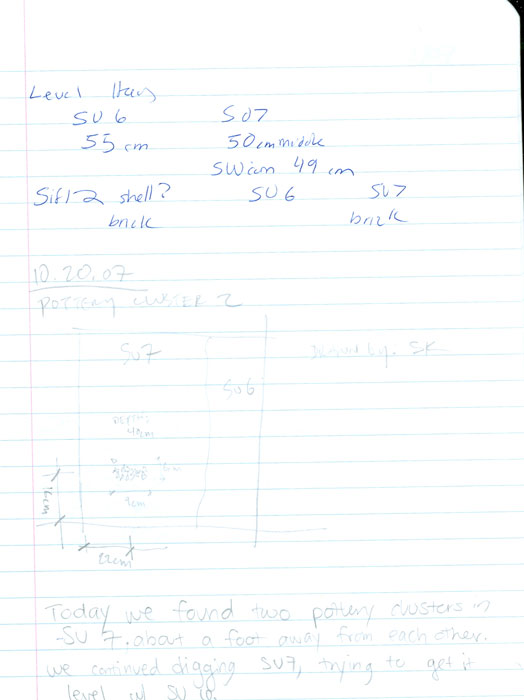 Level
SU 6 SU7
55 cm 50cm middle
49 cm
shell? SU6 SU7
brick brick
10.20.07
POTTERY CLUSTER 2
SU7
Drawn by: SK
SU6
DEPTH:
48cm
9cm
16cm
22cm
Today we found two pottery clusters in
SU 7. about a foot away from each other.
we continued digging SU7, trying to get it
level w/ SU